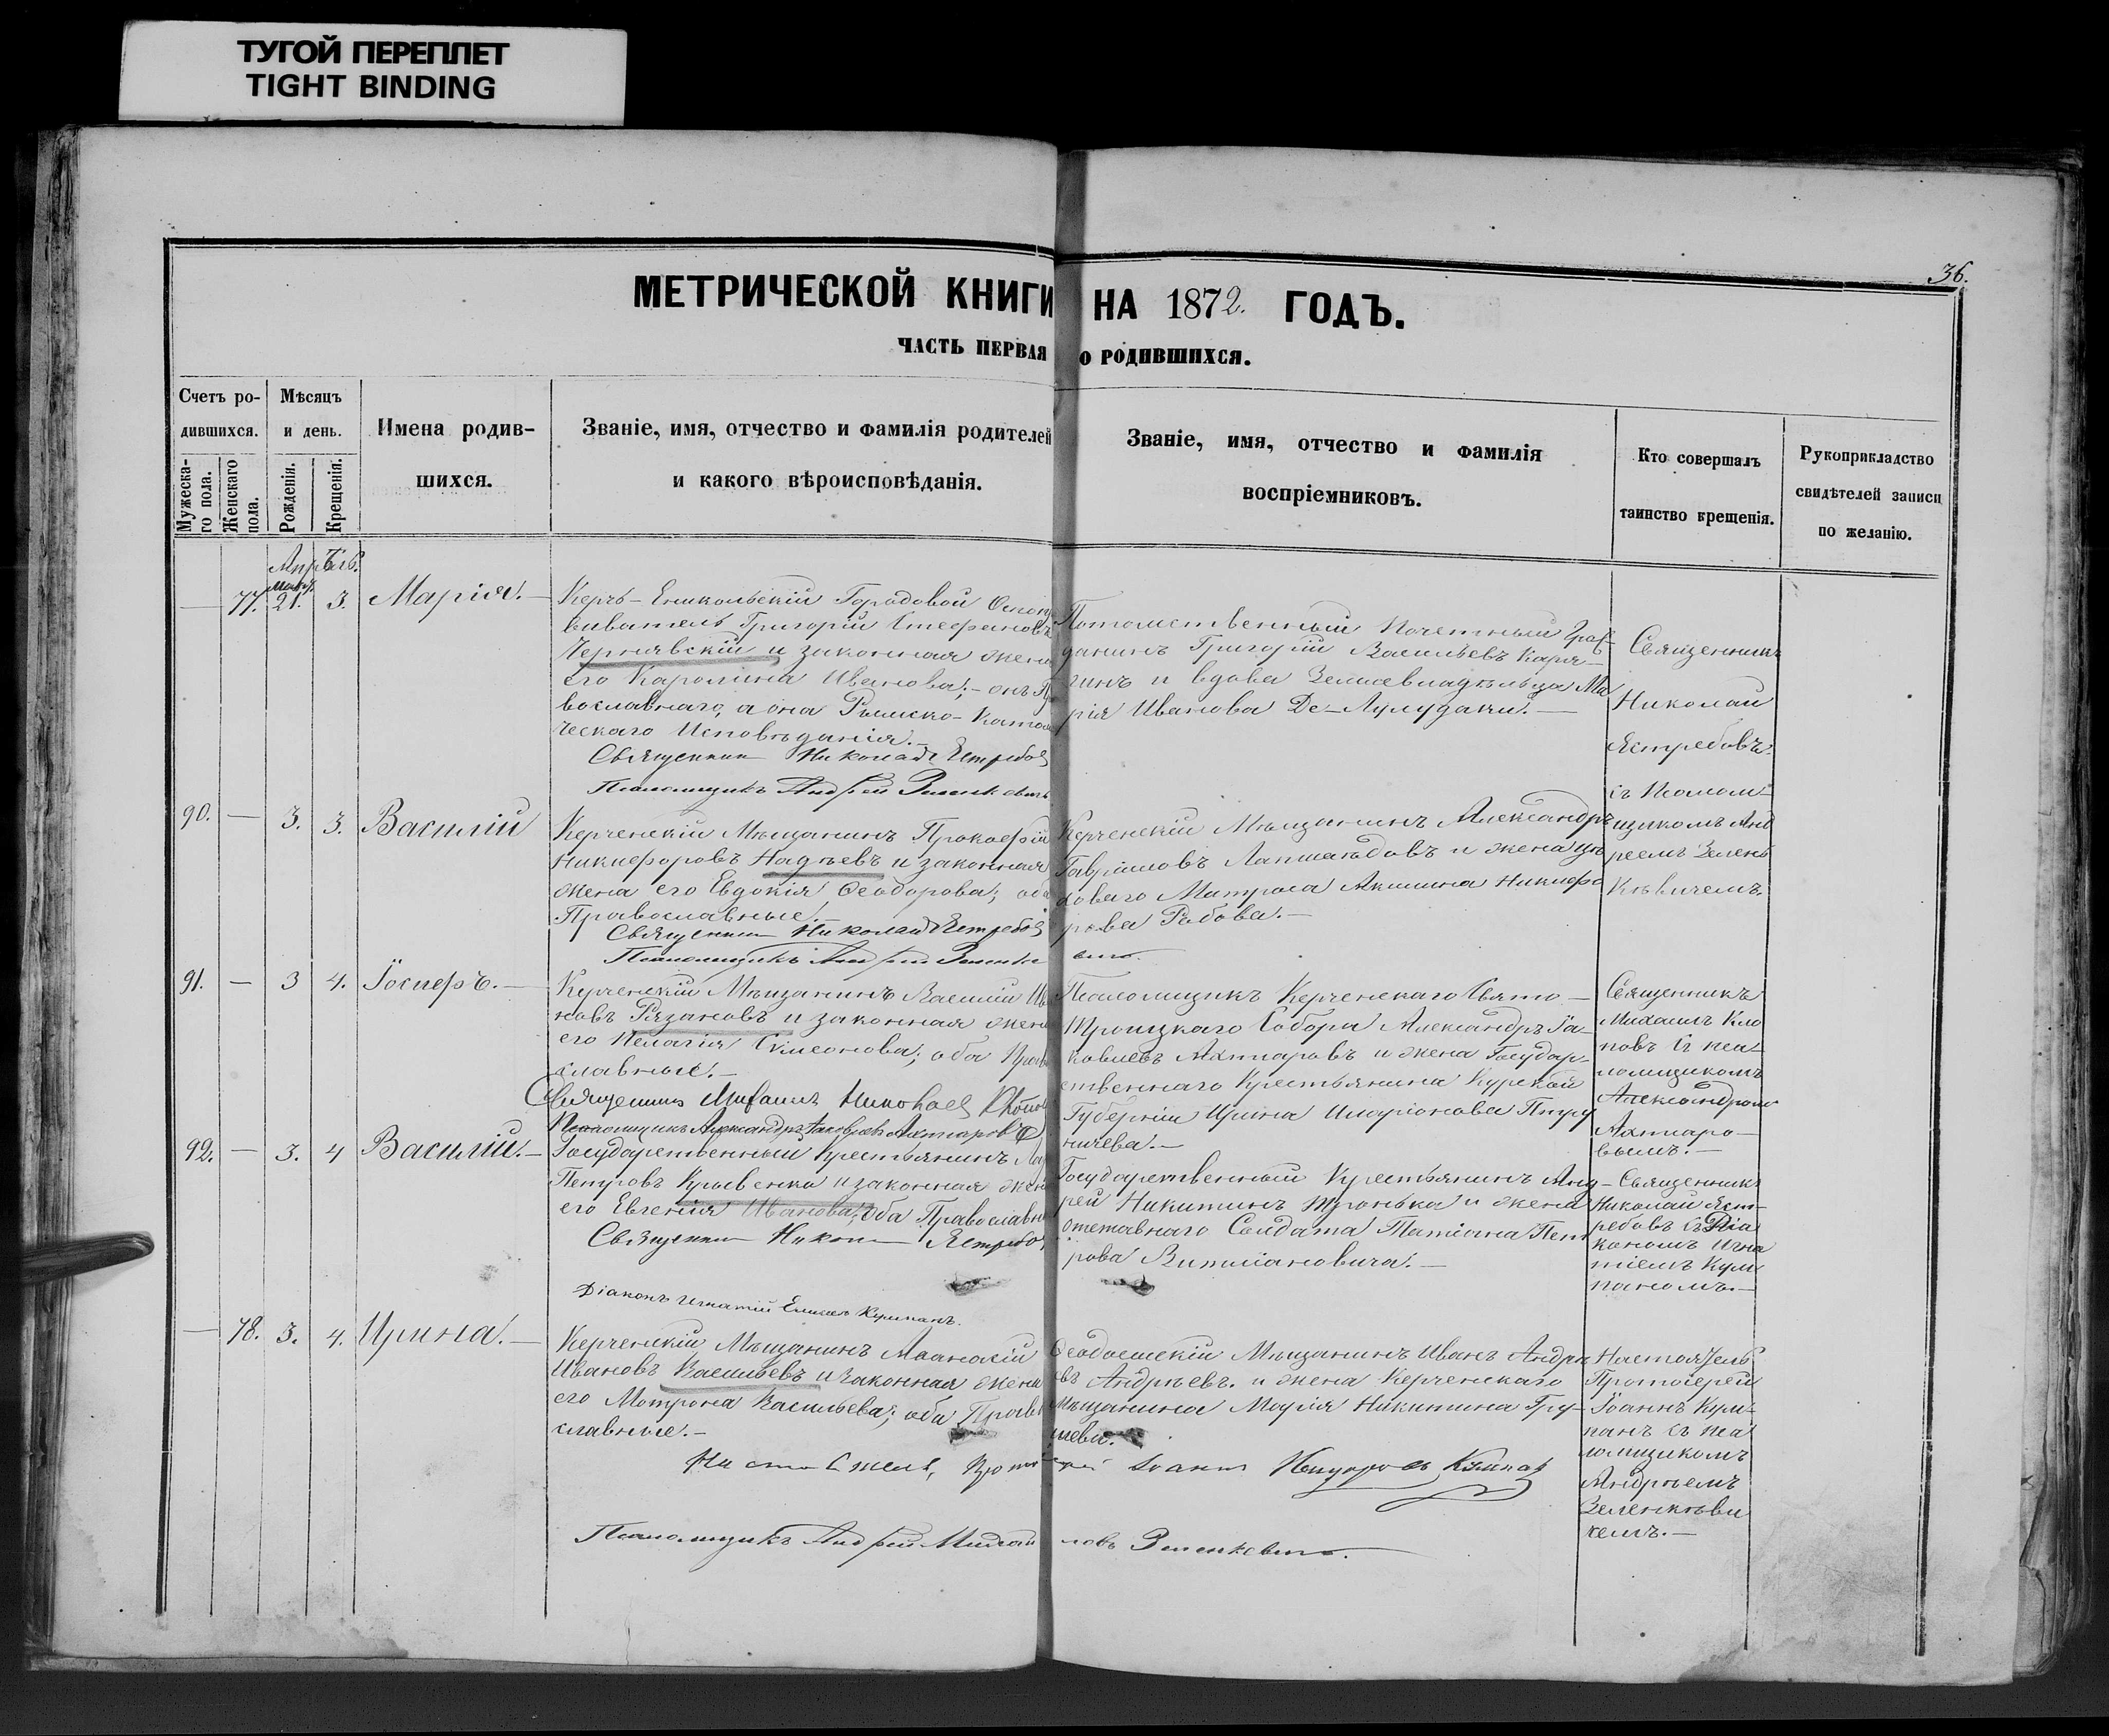 ТУГОЙ ПЕРЕПЛЕТ
TIGHT BINDING
36.
МЕТРИЧЕСКОЙ КНИГИ НА 1872. ГОДЪ.
ЧАСТЬ ПЕРВАЯ О РОДИВШИХСЯ.
Счетъ ро-
дившихся.
Мужеска-
го пола.
Женскаго
пола.
Мѣсяцъ
и день.
Рожденія.
Крещенія.
Имена родив-
шихся.
Званіе, имя, отчество и фамилія родителей
и какого вѣроисповѣданія.
Званіе, имя, отчество и фамилія
воспріемниковъ.
Кто совершалъ
таинство крещенія.
Рукоприкладство
свидѣтелей записи
по желанію.
Апрѣль.
— 77. Март. 21. 3. Марія. —
Керчь-Еникольскій Городовой
Григорій Стефановъ
Чернявскій и законная жена
его Каролина Иванова; — онъ Пра
вославнаго, а она Римско-Като
ческаго Исповѣданія. —
Священникъ Николай Ястребов
Псаломщикъ Андрей Зеленкевичъ
Потомственный Почетный Граж-
данинъ Григорій Васильевъ Каря-
гинъ и вдова Землевладѣльца Ма
рія Иванова Де-Лулудаки. —
Священникъ
Николай
Ястребовъ.
съ Псалом-
щикомъ Анд
реемъ Зелен
кѣвичемъ.
90. — 3. 3. Василій
Керченскій Мѣщанинъ Прокофій
Никифоровъ Надѣевъ и законная
жена его Евдокія Ѳеодорова; оба
Православные. —
Священникъ Николай Ястребов
Псаломщикъ Андрей Зеленкевичъ.
Керченскій Мѣщанинъ Александръ
Гавріиловъ и жена
Матроса Акилина Никифо
рова Рабова. —
91. — 3 4. Іосифъ. —
Керченскій Мѣщанинъ Василій Ива
новъ Рязановъ и законная жена
его Пелагія Симеонова; оба Право
славные. —
Священникъ Михаилъ Николаев Клопов
Псаломщикъ Александръ Іаковлевъ Ахтпаровъ
Псаломщикъ Керченскаго Свято-
Троицкаго Собора Александръ Іа-
ковлевъ Ахтпаровъ и жена Государ-
ственнаго Крестьянина Курской
Губерніи Ирина Иларіонова
Священникъ
Михаилъ Кло
повъ съ пса-
ломщикомъ
Александромъ
Ахтпаро-
вымъ. —
92. — 3. 4 Василій. —
Государственный Крестьянинъ
Петровъ Кривенко и законная жена
его Евгенія Иванова; оба Православные
Священникъ Никол Ястребов
Діаконъ Игнатій Кулпанъ.
Государственный Крестьянинъ Анд-
рей Никитинъ Тронька и жена
отставнаго Солдата Татіана Пет
рова Витміановича. —
Священникъ
Николай Яст-
ребовъ съ Діа
кономъ Игна
тіемъ Кул
паномъ. —
— 78. 3. 4. Ирина. —
Керченскій Мѣщанинъ Аѳанасій
Ивановъ Васильевъ и законная жена
его Матрона Васильева; оба Право
славные. —
Ѳеодосійскій Мѣщанинъ Иванъ Андре
въ Андреевъ. и жена Керченскаго
Мѣщанина Марія Никитина Гру-
шева.
Настоятель
Протоіерей
Іоаннъ Кул-
панъ съ пса
ломщикомъ
Андреемъ
Зеленкѣви
чемъ. —
Настоятель, Протоіерей Іоаннъ Кулпан
Псаломщикъ Андрей Михайловъ Зеленкевичъ.